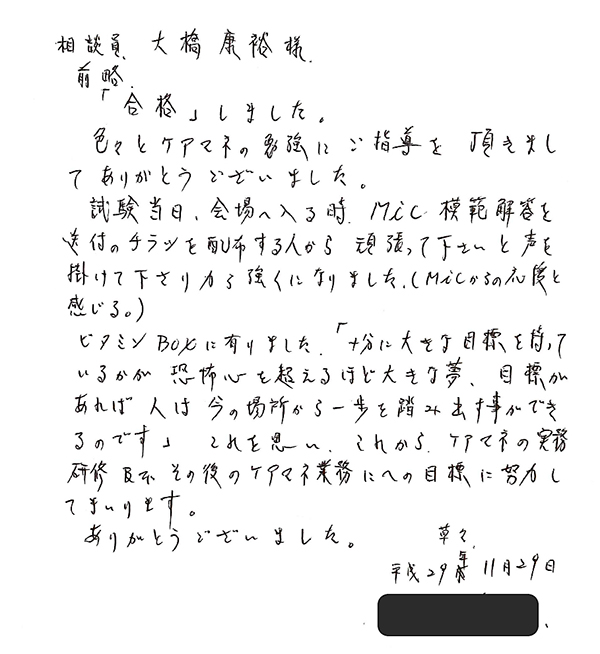 相談員 大橋康裕様
前略.
「合格」しました。
色々とケアマネの勉強にご指導を頂きまし
てありがとうございました。
試験当日、会場へ入る時 MIC 模範解答を
送付のチラシを配布する人から 頑張って下さいと声を
掛けて下さり力る強くになりました.(MICからの応援と
感じる。)
ビタミンBOXに有りました.「十分に大きな目標を持って
いるかが 恐怖心を超えるほど大きな夢、目標が
あれば 人は 今の場所から一歩を踏み出す事ができ
るのです」 これを思い、これから、ケアマネの実務
研修 及び その後のケアマネ業務にへの目標に努力し
てまいります。
ありがとうございました。
草々.
平成29年 11月29日